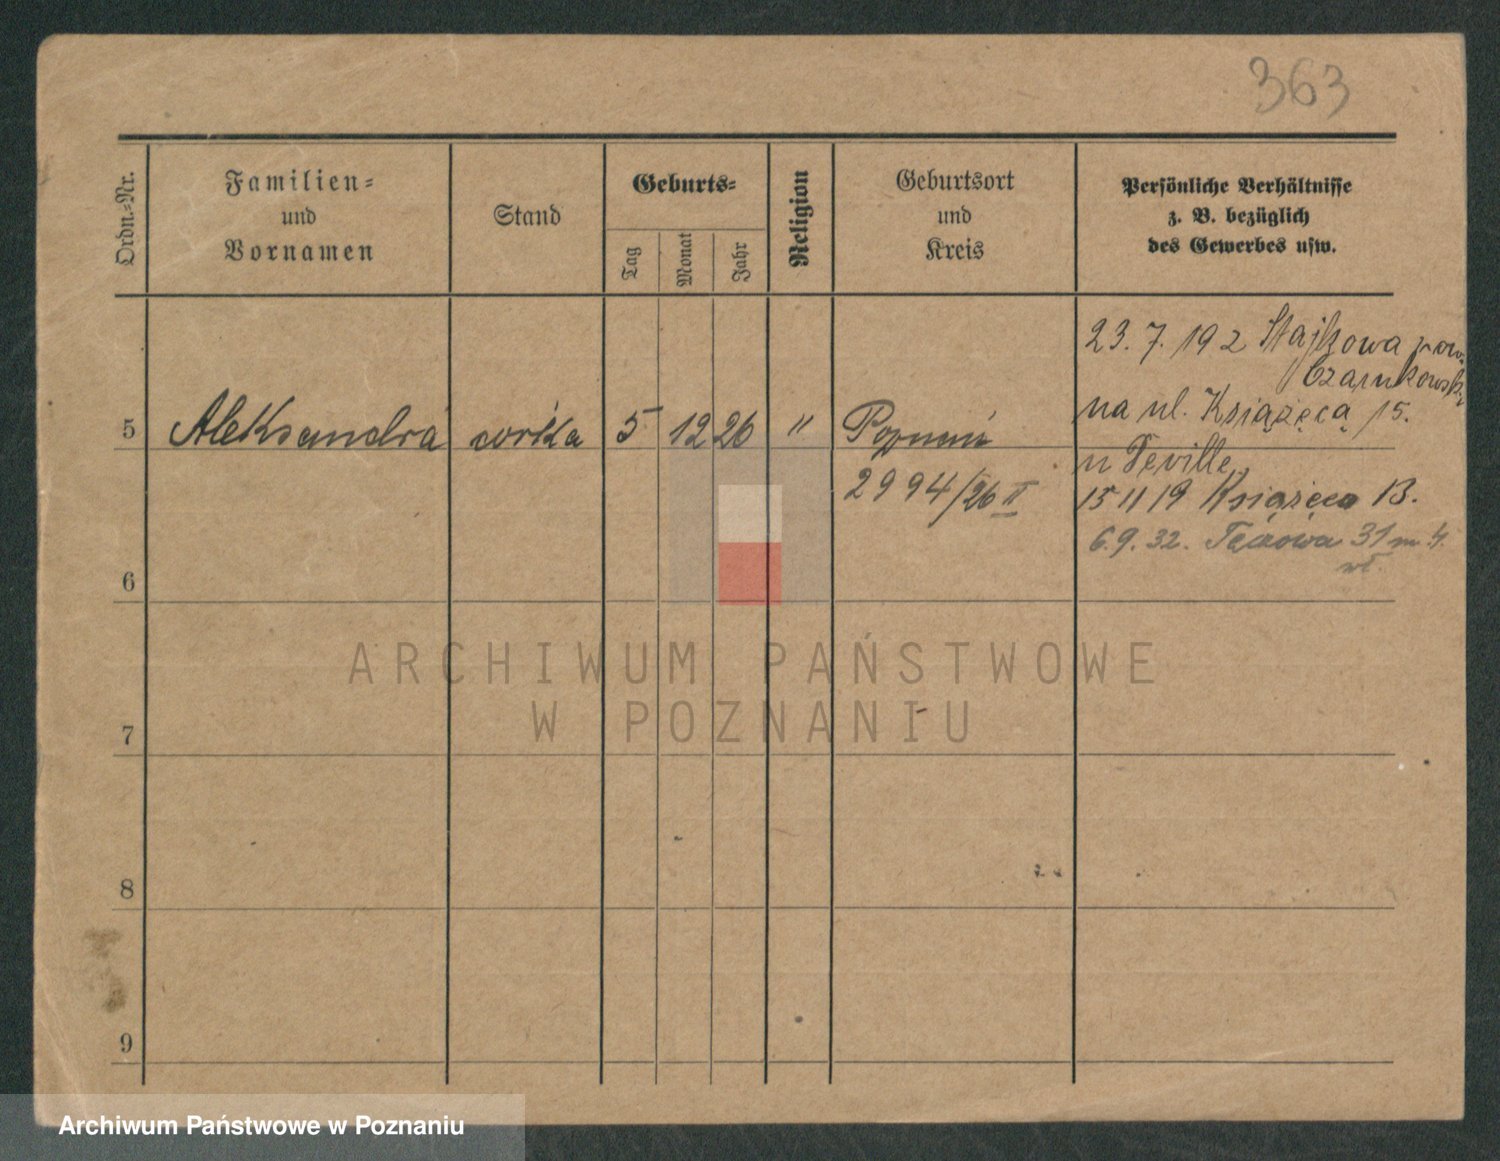 363
Ordn.-Nr.
Familien-
und
Vornamen
Stand
Geburts-
Tag
Monat
Jahr
Religion
Geburtsort
und
Kreis
Persönliche Verhältnisse
z. B. bezüglich
des Gewerbes usw.
23. 7. 192 Stajkowa pow.
Czarnkowski
na ul. Książęcą 15.
5 Aleksandra córka 5 12 26 " Poznań
u Deville
2994/26 II
15 11 19 Książęca 13.
6.9.32. 31 m 4.
6
ARCHIWUM PAŃSTWOWE
W POZNANIU
7
8
9
Archiwum Państwowe w Poznaniu